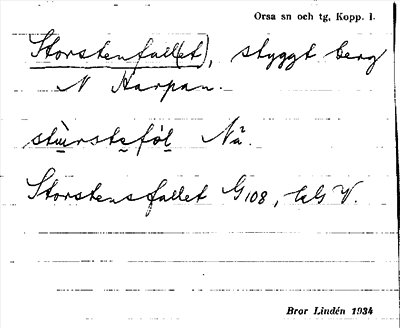 Orsa sn och tg, Kopp. l.
Storstenfall(et), styggt berg
N Harpan.
stùrstefo̩l Nå.
Storstensfallet G108, bl. V.
Bror Lindén 1934